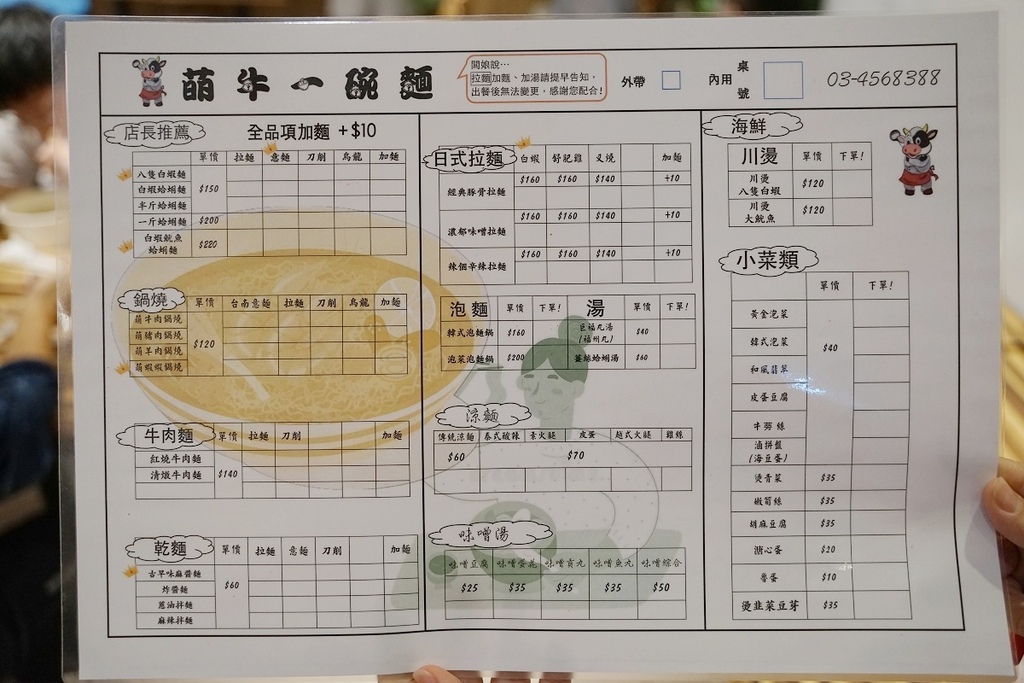 萌牛一碗麵
闆娘說…
拉麵加麵、加湯請提早告知，
出餐後無法變更，感謝您配合!
外帶
內用
桌號
03-4568388
店長推薦
全品項加麵 +$10
單價 拉麵 意麵 刀削 烏龍 加麵
八隻白蝦麵
白蝦蛤蜊麵 $150
半斤蛤蜊麵
一斤蛤蜊麵 $200
白蝦魷魚
蛤蜊麵 $220
鍋燒
單價 台南意麵 拉麵 刀削 烏龍 加麵
萌牛肉鍋燒
萌豬肉鍋燒
$120
萌羊肉鍋燒
萌蝦蝦鍋燒
牛肉麵
單價 拉麵 刀削 加麵
紅燒牛肉麵
清燉牛肉麵 $140
乾麵
單價 拉麵 意麵 刀削 加麵
古早味麻醬麵
炸醬麵 $60
蔥油拌麵
麻辣拌麵
日式拉麵
白蝦 舒肥雞 叉燒 加麵
經典豚骨拉麵 $160 $160 $140 +10
濃郁味噌拉麵 $160 $160 $140 +10
辣個辛辣拉麵 $160 $160 $140 +10
泡麵 單價 下單!
韓式泡麵鍋 $160
泡菜泡麵鍋 $200
湯 單價 下單!
豆福丸湯
(福州丸) $40
薑絲蛤蜊湯 $60
涼麵
傳統涼麵 泰式酸辣 素火腿 皮蛋 越式火腿 雞絲
$60 $70
味噌湯
味噌豆腐 味噌蛋花 味噌貢丸 味噌魚丸 味噌綜合
$25 $35 $35 $35 $50
海鮮
川燙 單價 下單!
川燙
八隻白蝦 $120
川燙
大魷魚 $120
小菜類
單價 下單!
黃金泡菜
韓式泡菜
$40
和風翡翠
皮蛋豆腐
牛蒡絲
滷拼盤
(海豆蛋)
燙青菜 $35
椒筍絲 $35
胡麻豆腐 $35
溏心蛋 $20
魯蛋 $10
燙韭菜豆芽 $35